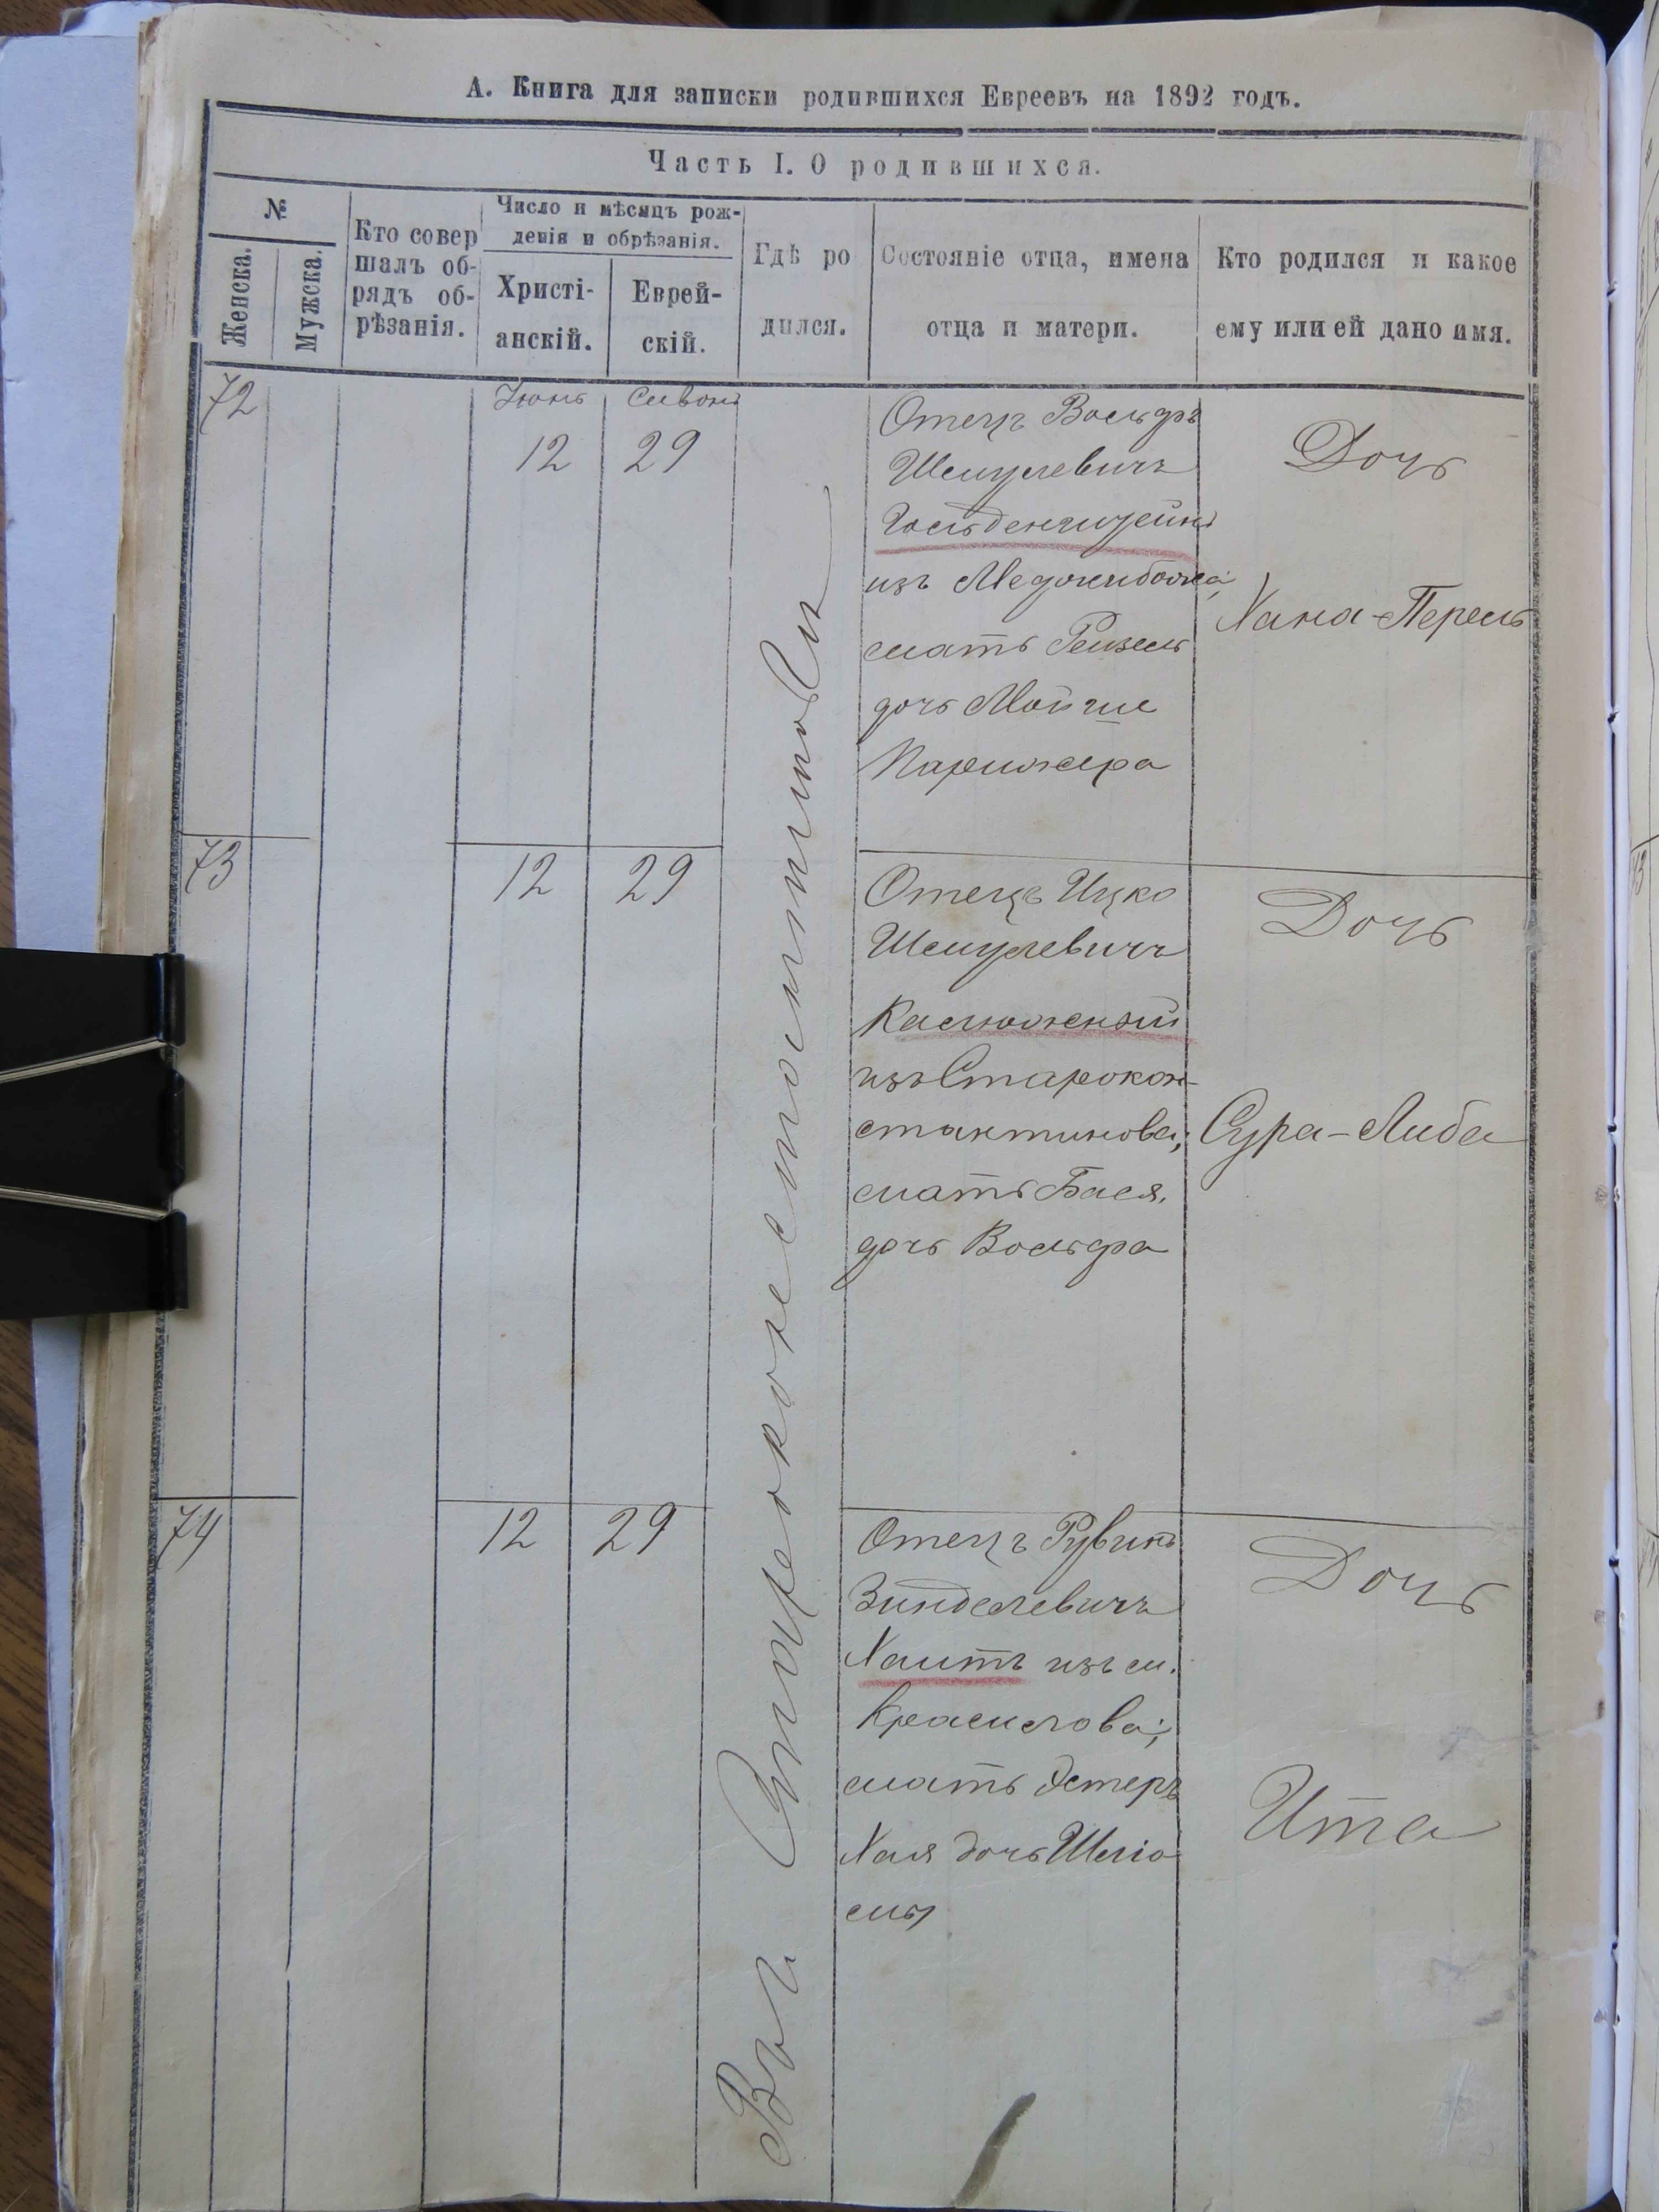 А. Книга для записки родившихся Евреевъ на 1892 годъ.
Часть I. О родившихся.
№
Женска.
Мужска.
Кто совер
шалъ об-
рядъ об-
рѣзанія.
Число и мѣсяцъ рож-
денія и обрѣзанія.
Христі-
анскій.
Еврей-
скій.
Гдѣ ро
дился.
Состояніе отца, имена
отца и матери.
Кто родился и какое
ему или ей дано имя.
72
Іюнь
12
Сивонъ
29
Въ г. Староконстантиновѣ
Отецъ Вольфъ
Шмулевичъ
из Меджибожа;
мать Рейзель
дочь Мойше
Парижера
Дочь
Хана-Перель
73
12
29
Отецъ Ицко
Шмулевичъ
изъ Старокон-
стантинова;
мать Бася,
дочь Вольфа
Дочь
Сура-Либа
74
12
29
Отецъ Рувинъ
Зинделевичъ
Хаитъ изъ м.
Красилова;
мать Эстеръ
Хая дочь Шлио
мы
Дочь
Ита